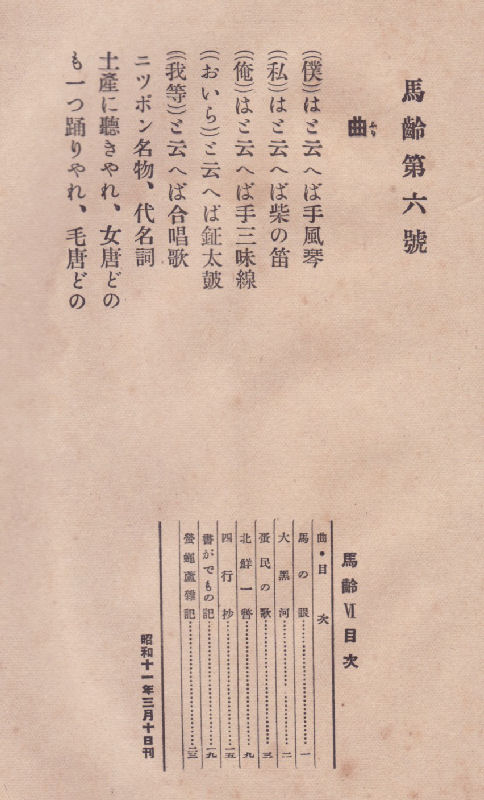 馬齡第六號
曲
ふり
(僕)はと云へば手風琴
(私)はと云へば柴の笛
(俺)はと云へば手三味線
(おいら)と云へば鉦太皷
(我等)と云へば合唱歌
ニツポン名物、代名詞
土產に聽きやれ、女唐どの
も一つ踊りやれ、毛唐どの
馬齡Ⅵ目次
曲・目次
馬の眼……一
大黑河……二
蛋民の歌……三
北鮮一瞥……九
四行抄……一五
書がでもの記……一九
螢蠅蘆雜記……二三
昭和十一年三月十日刊